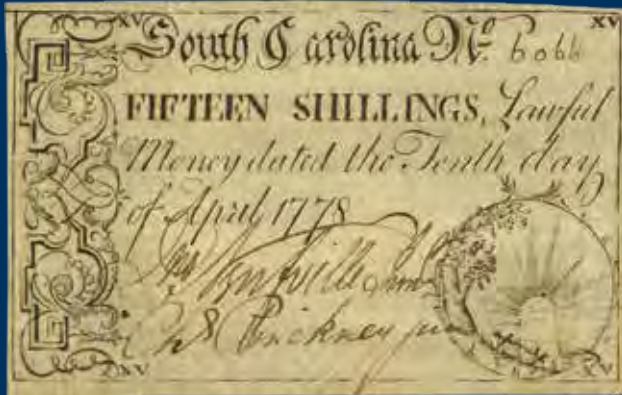 XV XV
South Carolina No. 6066
FIFTEEN SHILLINGS, Lawful
Money dated the Tenth day
of April 1778
Pinckney jun
XV XV